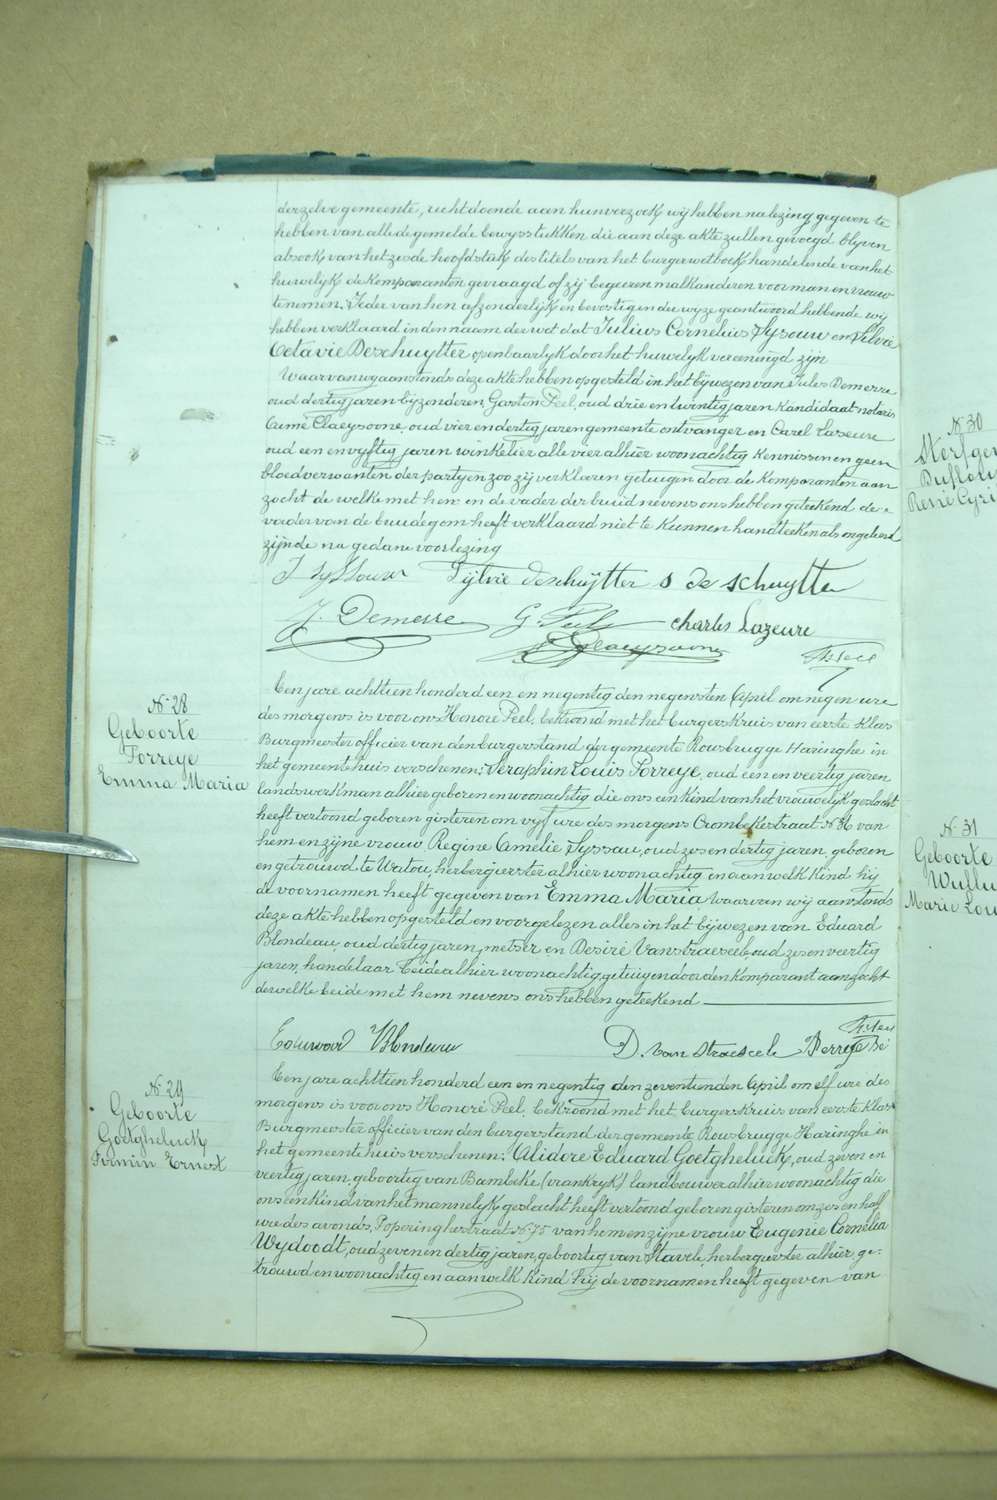 derzelve gemeente, rechtdoende aan hun verzoek wij hebben na lezing gegeven te
hebben van alle de gemelde bewysstukken die aan deze akte zullen gevoegd blyven
alsook van het zesde hoofdstuk des titels van het burgerwetboek handelende van het
huwelijk de Komparanten gevraagd of zij begeeren malkanderen voor man en vrouw
te nemen; Ieder van hen afzonderlijk en bevestigende wyze geantwoord hebbende wij
hebben verklaard in den naam der wet dat Julius Cornelius Syssouw en Silvie
Octavie Deschuytter openbaarlyk door het huwelyk vereenigd zijn
Waarvan wy aanstonds deze akte hebben opgesteld in het bijwezen van Jules Demerre
oud dertig jaren byzonderen, Gaston Peel, oud drie en twintig jaren Kandidaat notaris
Aimé Claeysoone, oud vier en dertig jaren gemeente ontvanger en Carel Lazeure
oud een en vyftig jaren winkelier alle vier alhier woonachtig Kennissen en geen
bloedverwanten der partyen zoo zij verklaren getuigen door de Komparanten aan
zocht de welke met hen en de vader der bruid nevens ons hebben geteekend de
vader van de bruidegom heeft verklaard niet te kunnen handteeken als ongeleerd
zijnde na gedane voorlezing
J Syssouw Sylvie deschuytter S de schuytter
J. Demerre G. Peel charles Lazeure
A Claeysoone H. Peel
N. 28
Geboorte
Porreye
Emma Maria
Een jare achttien honderd een en negentig den negensten April om negen ure
des morgens is voor ons Honoré Peel, bekroond met het burgerskruis van eerste Klas
Burgmeester officier van den burgerstand der gemeente Rousbrugge Haringhe in
het gemeentehuis verschenen; Seraphin Louis Porreye, oud een en veertig jaren
landswerkman alhier geboren en woonachtig die ons een kind van het vrouwelyk geslacht
heeft vertoond geboren gisteren om vyf ure des morgens Crombekestraat N. 36 van
hem en zijne vrouw Regine Amelie Syssau, oud zes en dertig jaren, geboren
en getrouwd te Watou, herbergierster alhier woonachtig en aan welk Kind hij
de voornamen heeft gegeven van Emma Maria Waarvan wij aanstonds
deze akte hebben opgesteld en voorgelezen alles in het bijwezen van Eduard
Blondeau, oud dertig jaren, metser en Desiré Vanstraeseele oud zes en veertig
jaren, handelaar beide alhier woonachtig, getuigen door den Komparant aangezocht
de welke beide met hem nevens ons hebben geteekend
Edward Blondeau D. van Straeseele Porreye
H. Peel
N. 29
Geboorte
Goetgheluck
Firmin Ernest
Een jare achttien honderd een en negentig den zeventienden April om elf ure des
morgens is voor ons Honoré Peel, bekroond met het burgerskruis van eerste Klas
Burgmeester officier van den burgerstand der gemeente Rousbrugge Haringhe in
het gemeentehuis verschenen; Alidore Eduard Goetgheluck, oud zeven en
veertig jaren, geboortig van Bambeke (vrankryk) landbouwer alhier woonachtig die
ons een kind van het mannelyk geslacht heeft vertoond geboren gisteren om zes en half
ure des avonds, Poperinghestraat N. 75 van hem en zijne vrouw Eugenie Cornelia
Wydoodt, oud zeven en dertig jaren, geboortig van Stavele, herbergierster alhier, ge-
trouwd en woonachtig en aan welk Kind hij de voornamen heeft gegeven van
N. 30
N. 31
Geboorte